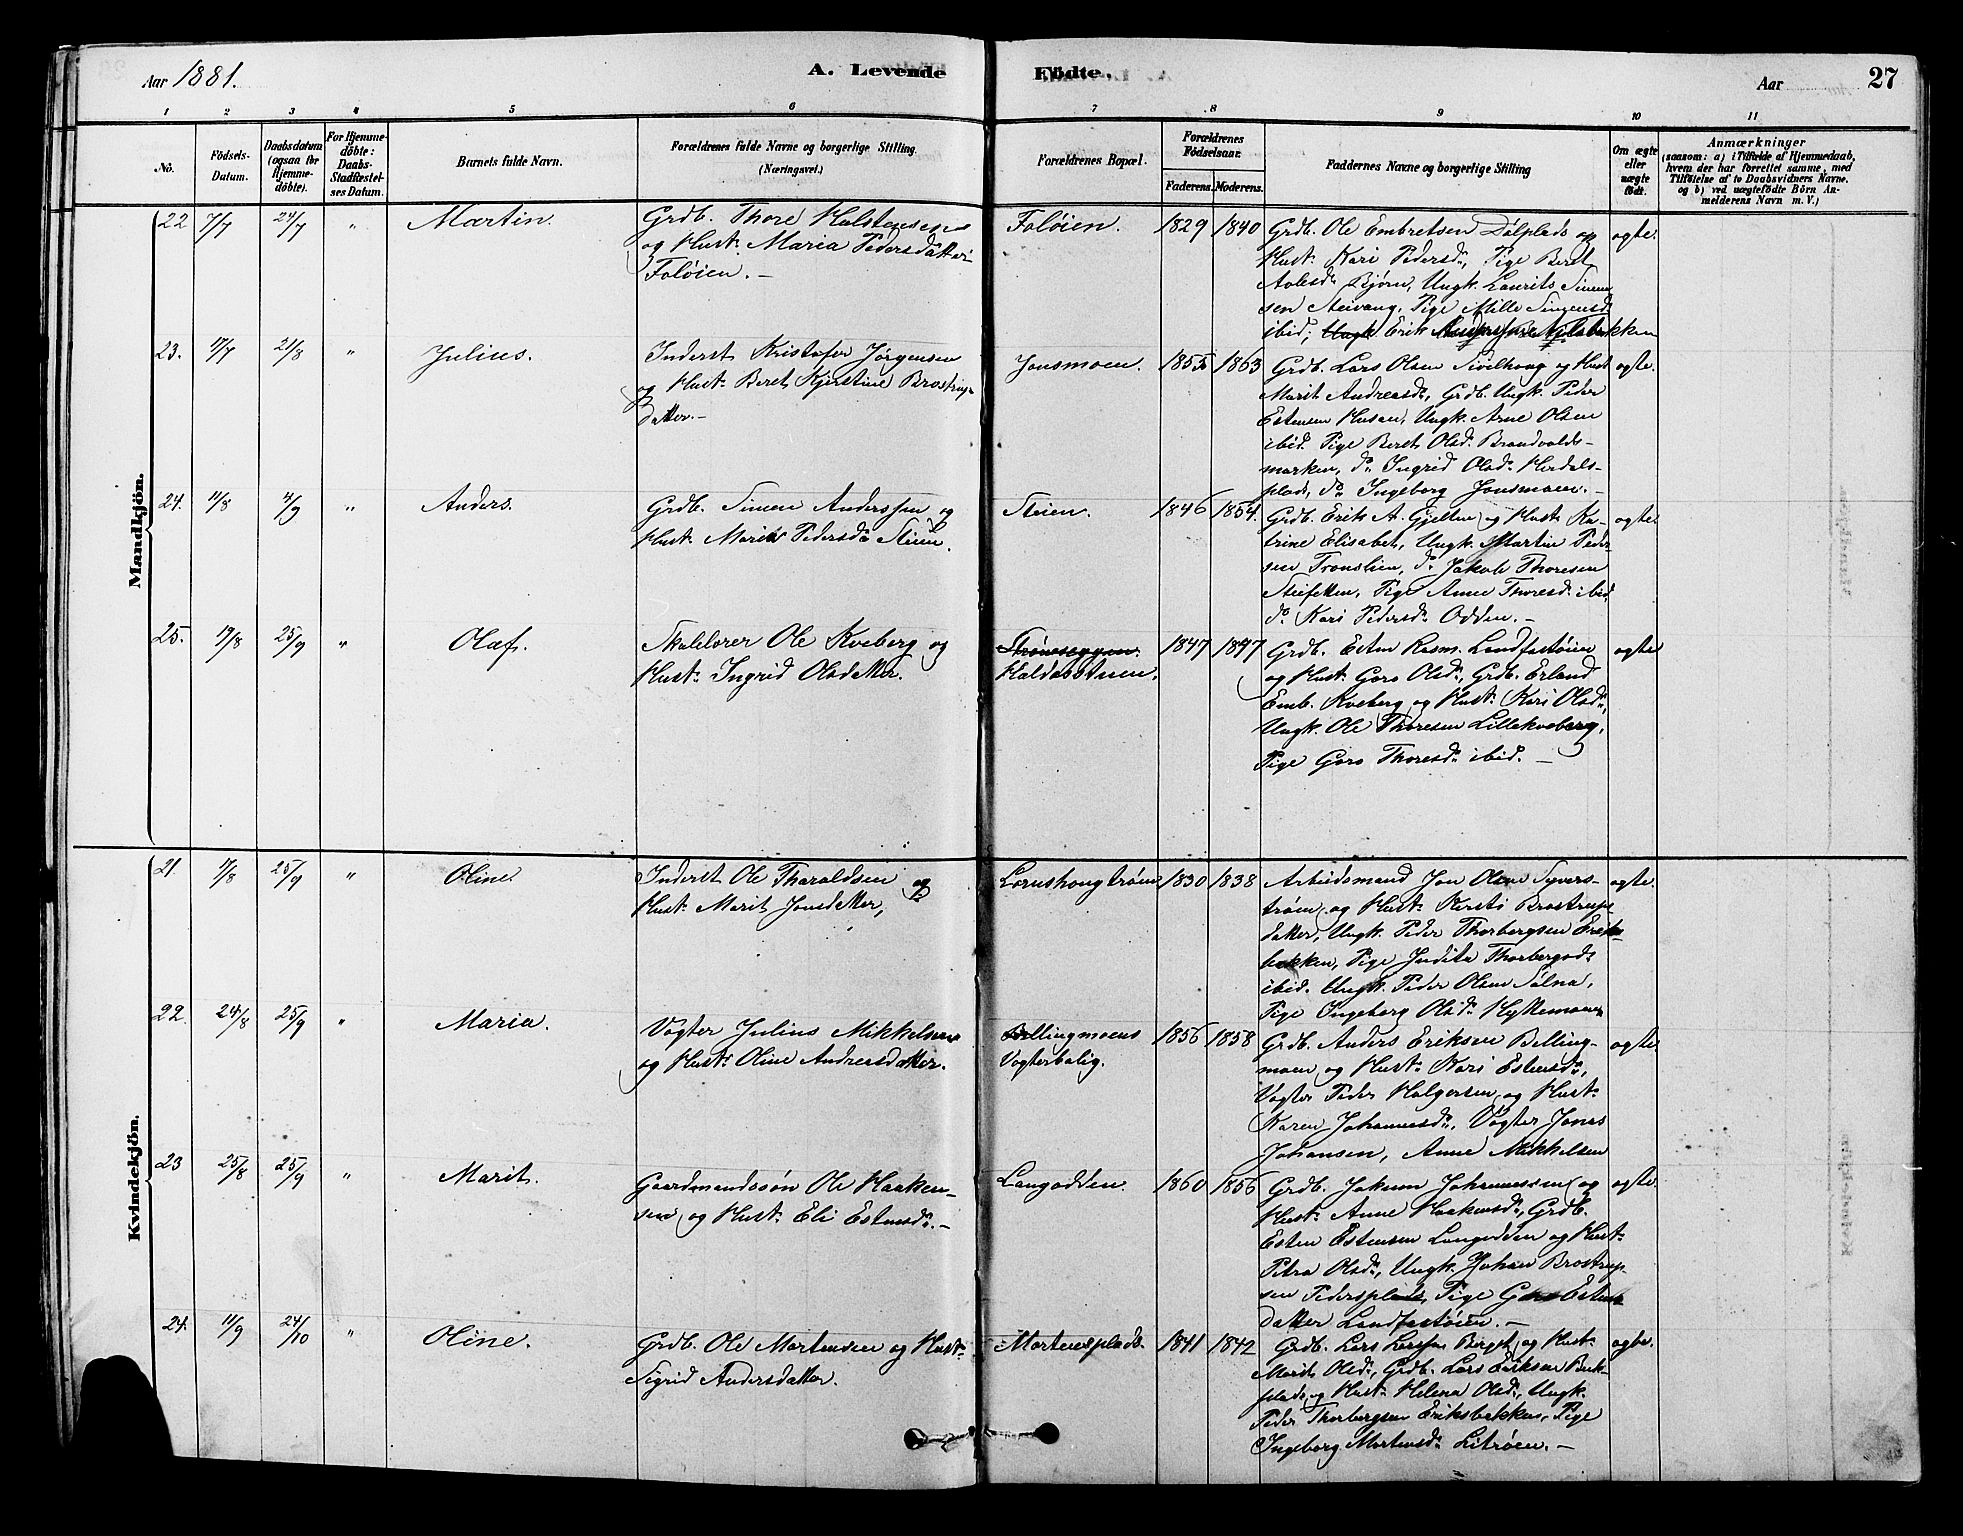 Aar 1881.
A. Levende
Födte.
Aar
27
1
2
3
4
5
6
7
8
9
10
11
No.
Födsels-
Datum.
Daabsdatum
(ogsaa for
Hjemme-
döbte).
For Hjemme-
döbte:
Daabs-
Stadfæstel-
ses Datum.
Barnets fulde Navn.
Forældrenes fulde Navne og borgerlige Stilling
(Næringsvei.)
Forældrenes Bopæl.
Forældrenes
Födselsaar.
Faderens.
Moderens.
Faddernes Navne og borgerlige Stilling
Om ægte
eller
uægte
födt.
Anmærkninger
(saasom: a) i Tilfælde af Hjemmedaab,
hvem der har forrettet samme, med
Tilföielse af to Daabsvidners Navne.
og b) ved uægtefödte Börn An-
melderens Navn m. V.)
Mandkjön.
22
7/7
24/7
"
Martin.
Grdb. Thore Halstensen
og Hust. Maria Pedersdatter
Foløien. –
Foløien.
1829
1840
Grdb. Ole Embretsen Dølplads og
Hust. Kari Pedersd., Pige Beret
Bjørn, Ungk. Laurits Simen
sen Steivang, Pige Mille Simensd.
ibid; Ungk Erik
ægte.
23.
17/7
21/8
"
Julius.
Inderst Kristofer Jørgensen
og Hust. Beret Kjerstine Brostrup-
datter. –
Jonsmoen.
1855
1863
Grdb. Lars Olsen Sivilhoug og Hust
Marit Andreasd., Grdb. Ungk. Peder
Estensen Husan, Ungk. Arne Olsen
ibid. Pige Beret Olsd. Brandvolds-
marken, do. Ingrid Olsd. Herdals-
plads, do. Ingeborg Jonsmoen. –
ægte.
24.
11/8
4/9
"
Anders.
Grdb. Simen Anderssen og
Hust. Marit Pedersd. Steien.
Steien.
1846
1854.
Grdb. Erik A. Gjelten og Hust. Ka-
trine Elisabet, Ungk. Martin Peder-
sen Tronslien, do. Jakob Thoresen
Steifetten, Pige Anne Thoresd. ibid,
do. Kari Pedersd. Odden. –
ægte.
25.
19/8
25/9
"
Olaf.
Skolelærer Ole Kveberg og
Hust. Ingrid Olsdatter.
Haldosstuen.
1847
1847
Grdb. Esten Rasm. Landfastøien
og Hust. Goro Olsd., Grdb. Erland
Emb. Kveberg og Hust. Kari Olsd.,
Ungk. Ole Thoresen Lillekveberg,
Pige Goro Thoresd. ibid. –
ægte
Kvindekjön.
21
7/8
25/9
"
Oline.
Inderst Ole Tharaldsen og
Hust. Marit Jonsdatter,
Lornshougtrøen
1830
1838
Arbeidsmand Jon Olsen Syvers-
trøen og Hust. Kersti Brostrups
datter, Ungk. Peder Thorbergsen Eriks-
bakken, Pige Indita Thorbergsd.
ibid. Ungk. Peder Olsen Sølna,
Pige Ingeborg Olsd. Hyttemoen
ægte.
22.
24/8
25/9
"
Maria.
Vogter Julius Mikkelsen
og Hust. Oline Andreasdatter.
Bellingmoens
Vogterbolig.
1856
1858
Grdb. Anders Eriksen Belling-
moen og Hust. Kari Estensd.,
Vogter Peder Holgersen og Hust.
Karen Johannesd., Vogter Jonas
Johansen, Anne Mikkelsen
ægte.
23
25/8
25/9
"
Marit.
Gaardmandssøn Ole Haaken-
sen og Hust. Eli Estensd. –
Langodden.
1860
1856
Grdb. Jakum Johannessen og
Hust. Anne Haakensd., Grdb.
Esten Estensen Langodden og Hust.
Petra Olsd., Ungk. Johan Brostrup
sen Pedersplads, Pige Goro Estens
datter Landfastøien. –
ægte.
24.
11/9
24/10
"
Oline.
Grdb. Ole Mortensen og Hust.
Sigrid Andersdatter.
Mortensplads.
1841
1842
Grdb. Lars Larsen Bergst og Hust.
Marit Olsd., Grdb. Lars Eriksen Bek-
plads og Hust. Helena Olsd., Ungk.
Peder Thorbergsen Eriksbakken, Pige
Ingeborg Mortensd. Litrøen. –
ægte.